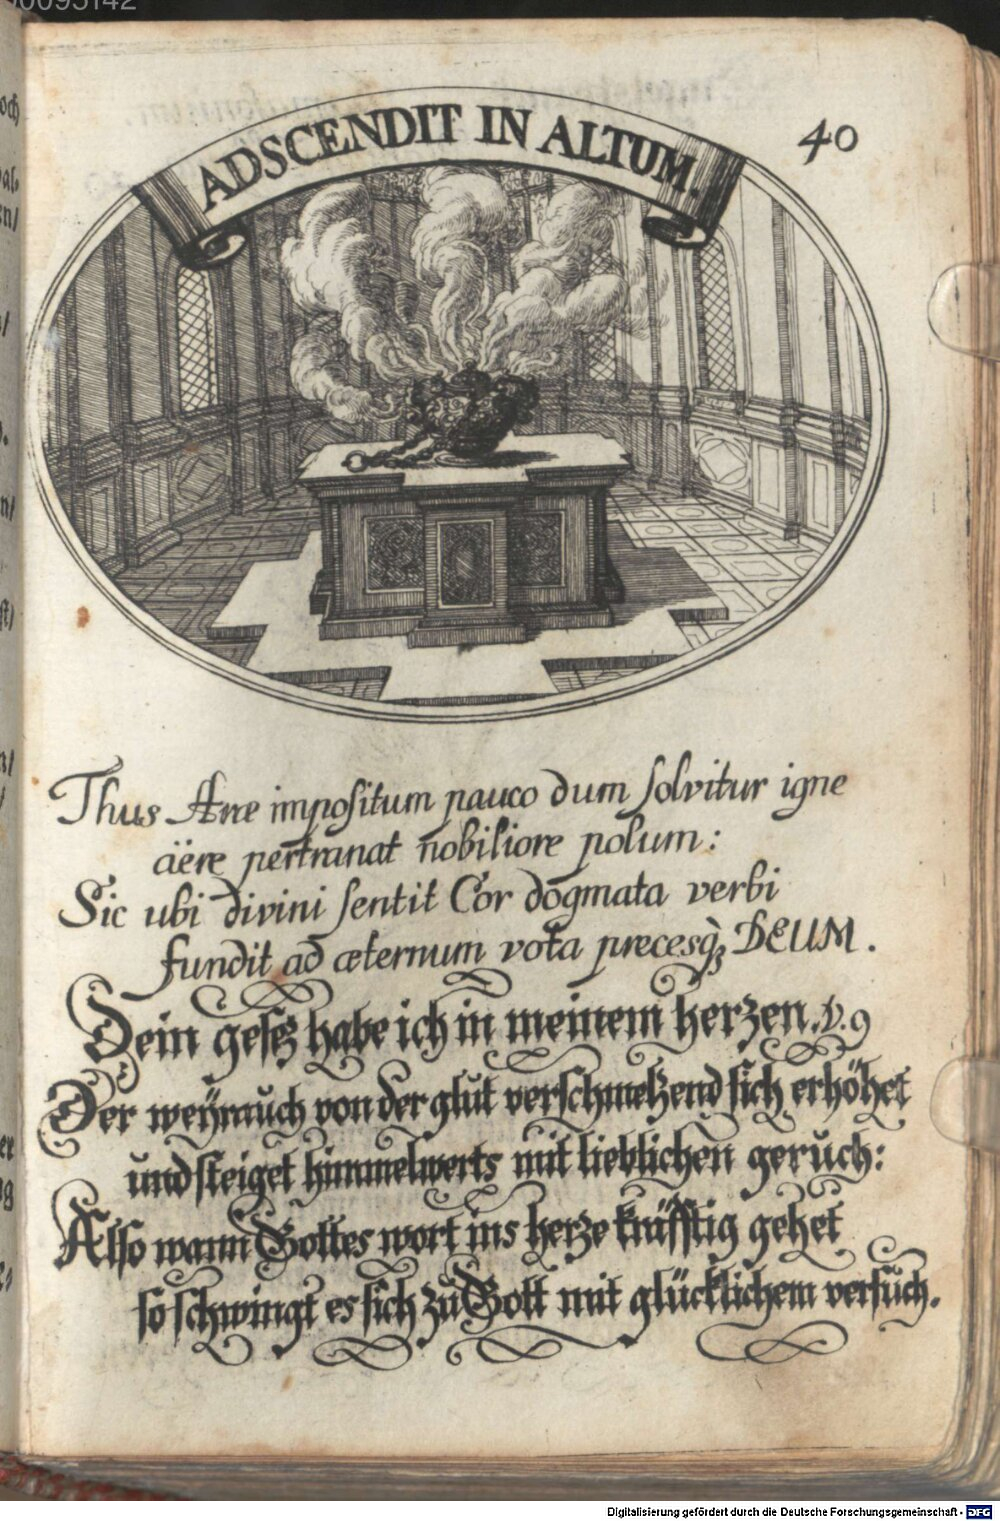 ADSCENDIT IN ALTUM.
40
Thus Aræ impositum pauco dum solvitur igne
aëre pertranat nobiliore polum:
Sic ubi divini sentit Cor dogmata verbi
fundit ad æternum vota precesq; DEUM.
Dein gesez habe ich in meinem herzen. v. 9
Der weÿrauch von der glut verschmelzend sich erhöhet
und steiget himmelwerts mit lieblichen geruch:
Also wann Gottes wort ins herze kräfftig gehet
so schwingt es sich zu Gott mit glücklichem versuch.
Digitalisierung gefördert durch die Deutsche Forschungsgemeinschaft - DFG